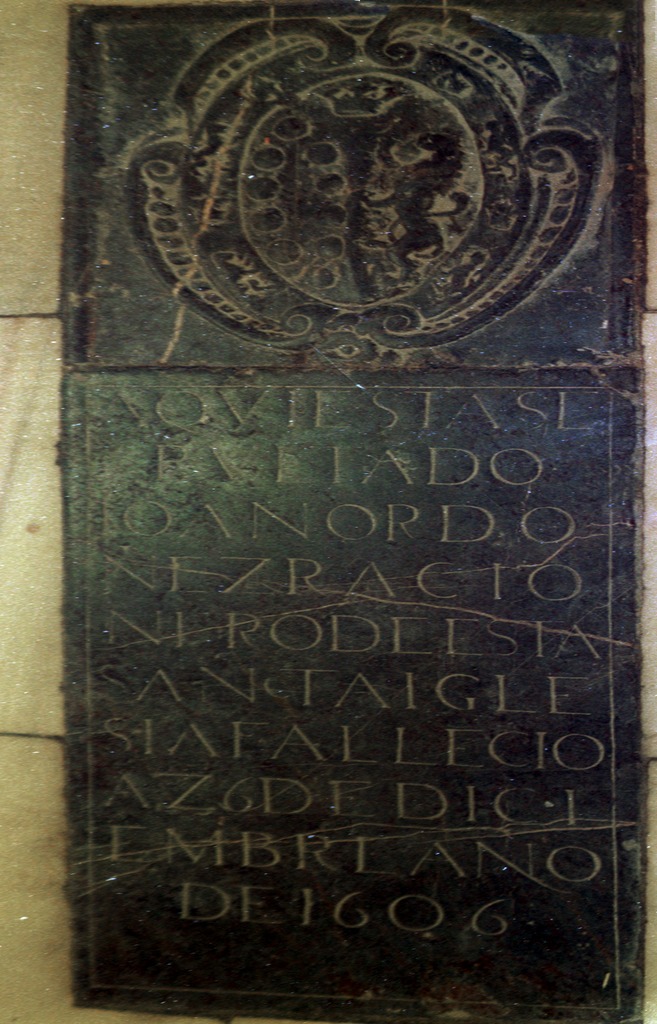 AQVI ESTA SE
PVLTADO
JOAN ORDO
NEZ RACIO
NERO DE ESTA
SANTA IGLE
SIA FALLECIO
A Z6 DE DICI
EMBRE ANO
DE 1606